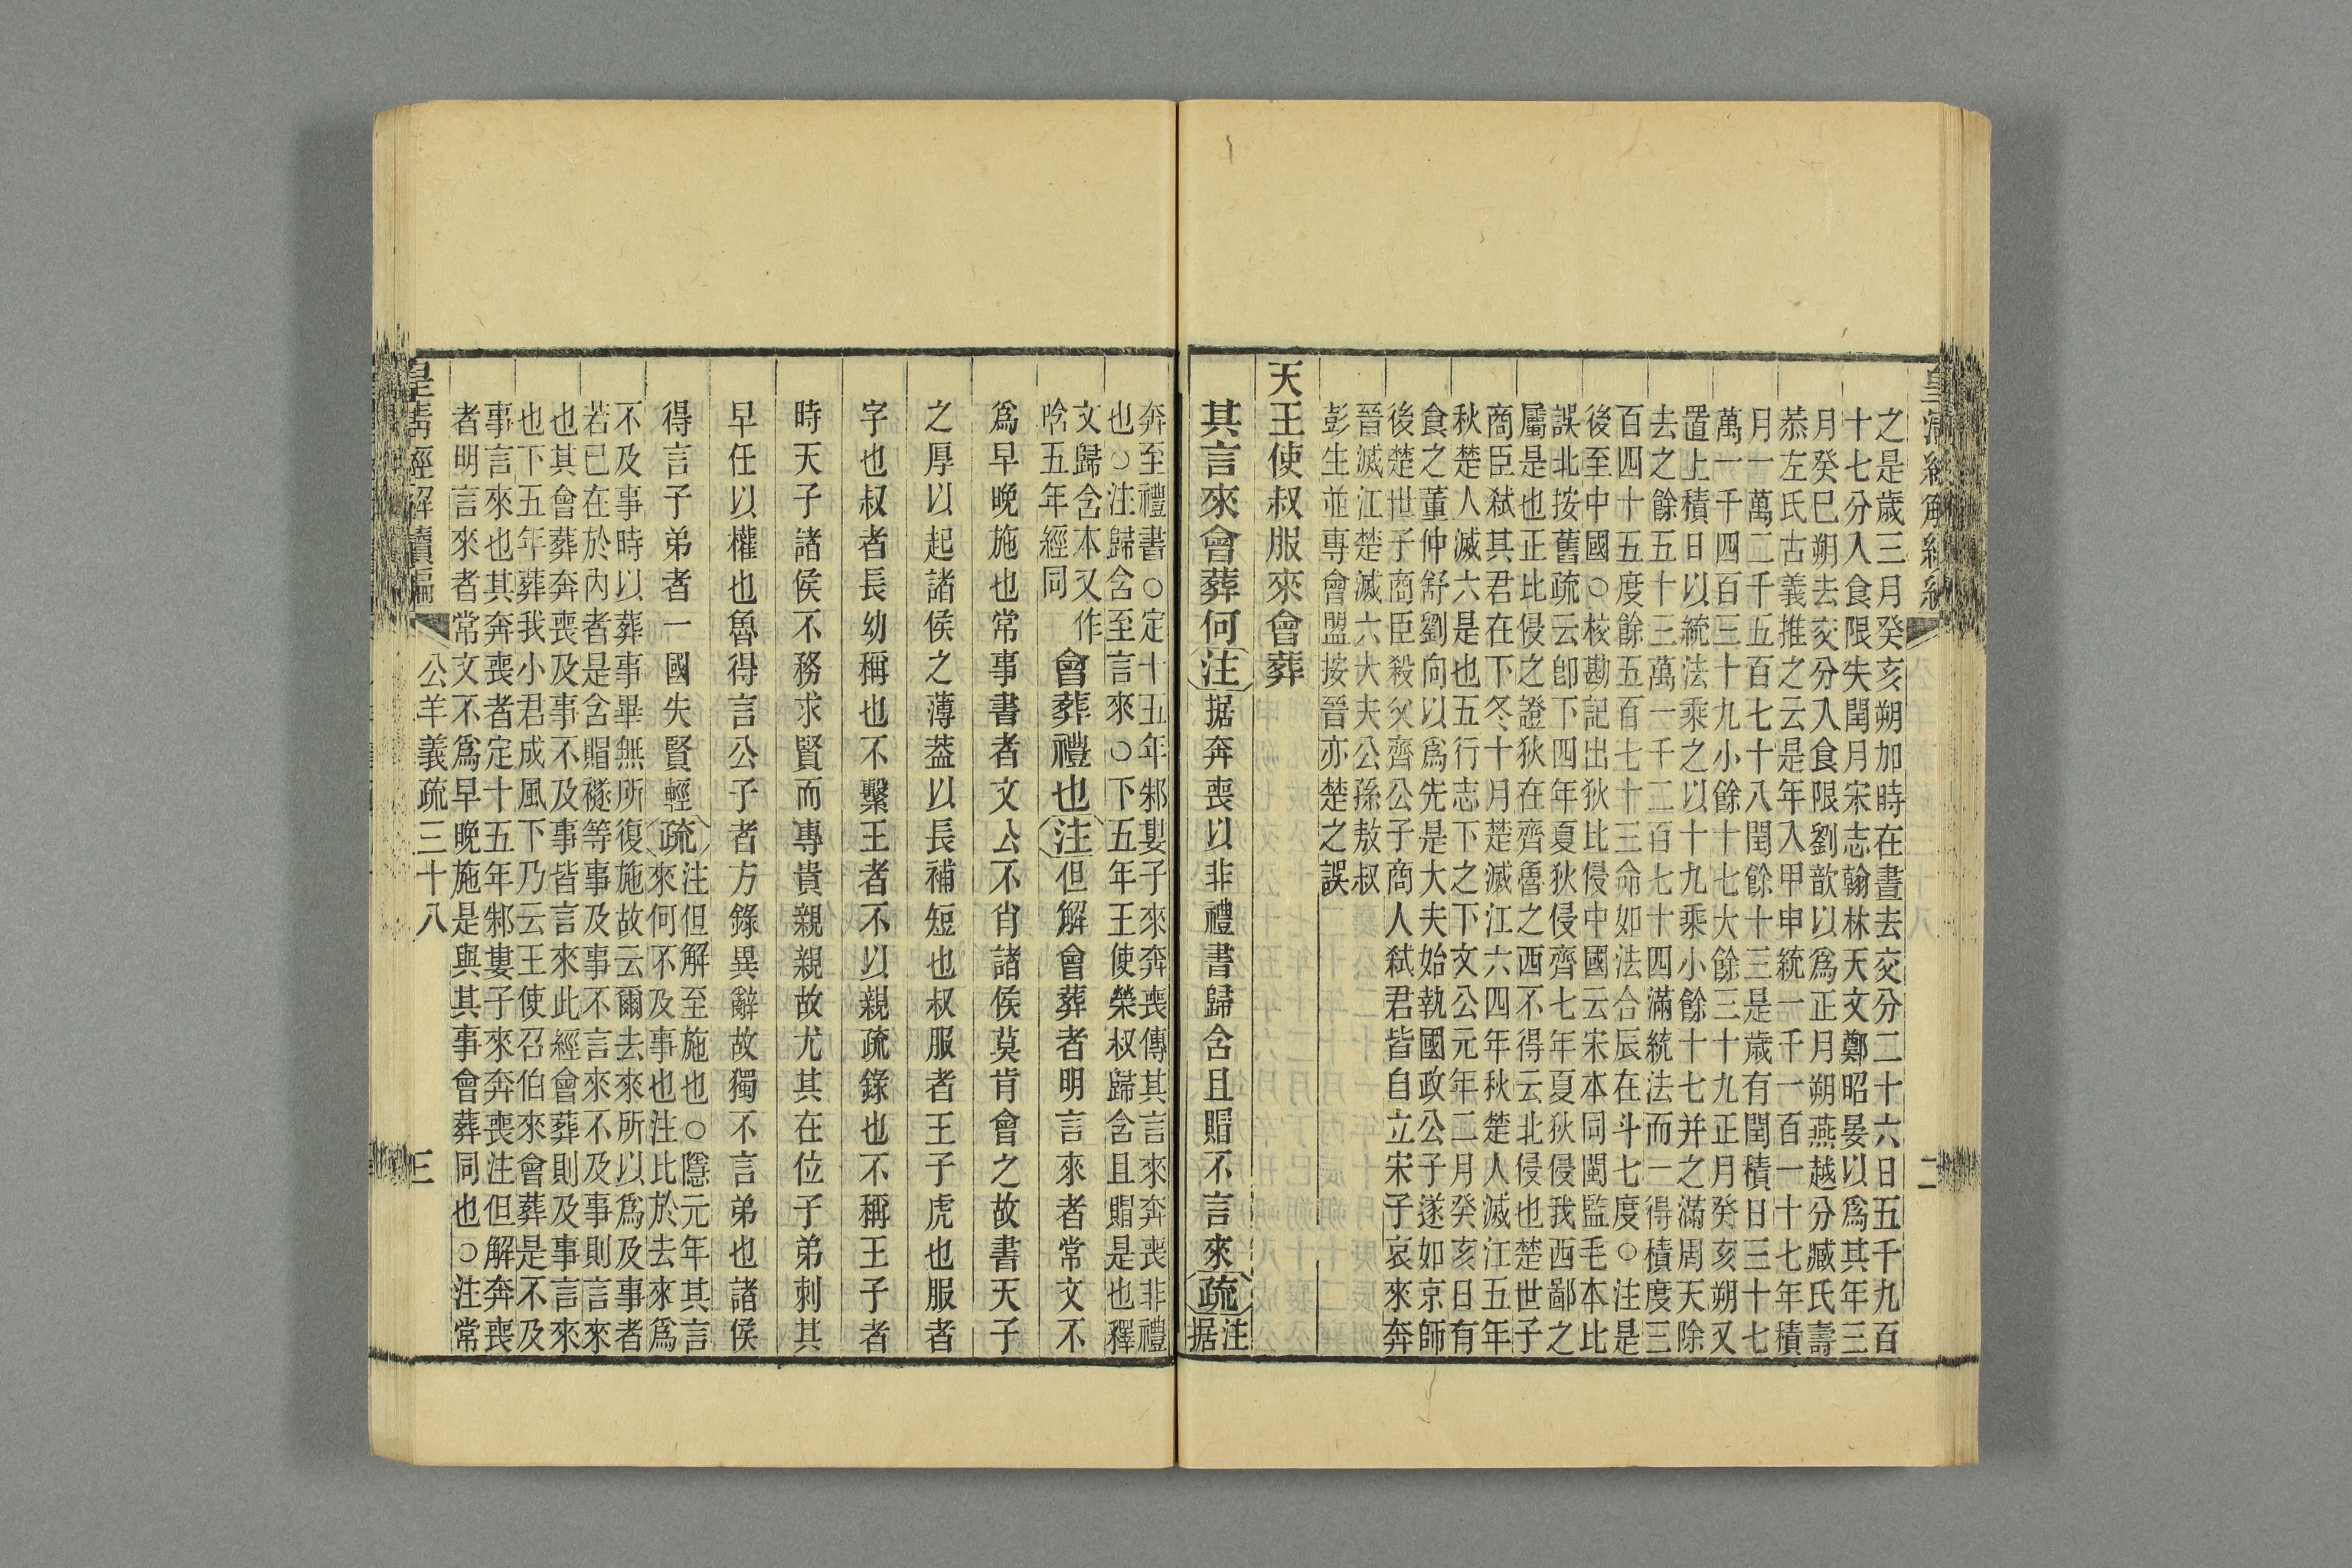 之是歲三月癸亥朔加時在晝去交分二十六日五千九百
十七分入食限失閏月宋志翰林天文鄭昭晏以爲其年三
月癸巳朔去交分入食限劉歆以爲正月朔燕越分臧氏壽
恭左氏古義推之云是年入甲申統一千一百一十七年積
月一萬二千五百七十八閏餘十三是歲有閏積日三十七
萬一千四百三十九小餘十七大餘三十九正月癸亥朔又
置上積日以統法乘之以十九乘小餘十七并之滿周天除
去之餘五十三萬一千二百七十四滿統法而一得積度三
百四十五度餘五百七十三命如法合辰在斗七度○注是
後至中國○核勘記出狄比侵中國云宋本同閩監毛本比
誤北按舊疏云卽下四年夏狄侵齊七年夏狄侵我西鄙之
屬是也正比侵之證狄在齊魯之西不得云北侵也楚世子
商臣弒其君在下冬十月楚滅江六四年秋楚人滅江五年
秋楚人滅六是也五行志下之下文公元年二月癸亥日有
食之董仲舒劉向以爲先是大夫始執國政公子遂如京師
後楚世子商臣殺父齊公子商人弒君皆自立宋子哀來奔
晉滅江楚滅六大夫公孫敖叔
彭生並專會盟按晉亦楚之誤
天王使叔服來會葬
其言來會葬何注据奔喪以非禮書歸含且賵不言來疏注
据
奔至禮書○定十五年邾婁子來奔喪傳其言來奔喪非禮
也○注歸含至言來○下五年王使榮叔歸含且賵是也釋
文歸含本又作
唅五年經同
會葬禮也注但解會葬者明言來者常文不
爲早晚施也常事書者文公不肖諸侯莫肯會之故書天子
之厚以起諸侯之薄葢以長補短也叔服者王子虎也服者
字也叔者長幼稱也不繫王者不以親疏錄也不稱王子者
時天子諸侯不務求賢而專貴親親故尤其在位子弟刺其
早任以權也魯得言公子者方錄異辭故獨不言弟也諸侯
得言子弟者一國失賢輕疏注但解至施也○隱元年其言
來何不及事也注比於去來爲
不及事時以葬事畢無所復施故云爾去來所以爲及事者
若已在於內者是含賵襚等事及事不言來不及事則言來
也其會葬奔喪及事不及事皆言來此經會葬則及事言來
也下五年葬我小君成風下乃云王使召伯來會葬是不及
事言來也其奔喪者定十五年邾婁子來奔喪注但解奔喪
者明言來者常文不爲早晚施是與其事會葬同也○注常
皇清經解續編 公羊義疏三十八 三
二